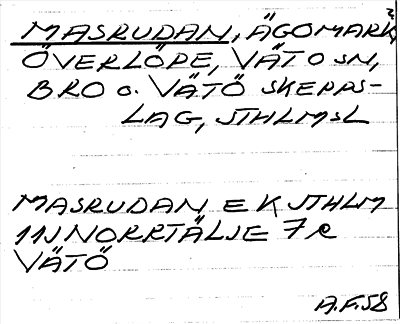 MASRUDAN, ÄGOMARK
ÖVERLÖPE, VÄTÖ SN,
BRO o. VÄTÖ SKEPPS-
LAG, STHLMSL
MASRUDAN E K STHLM
11J NORRTÄLJE 7 e
VÄTÖ
A.F.58